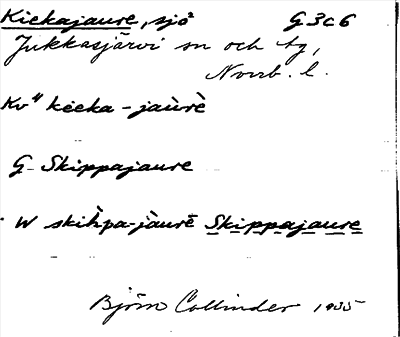 Kiekajaure, sjö² G 3c6
Jukkasjärvi sn och tg,
Norrb. l.
Kv⁴ kieka-jaùrè
G Skippajaure
W skih̀pa-jàurē Skippajaure
Björn Collinder 1935